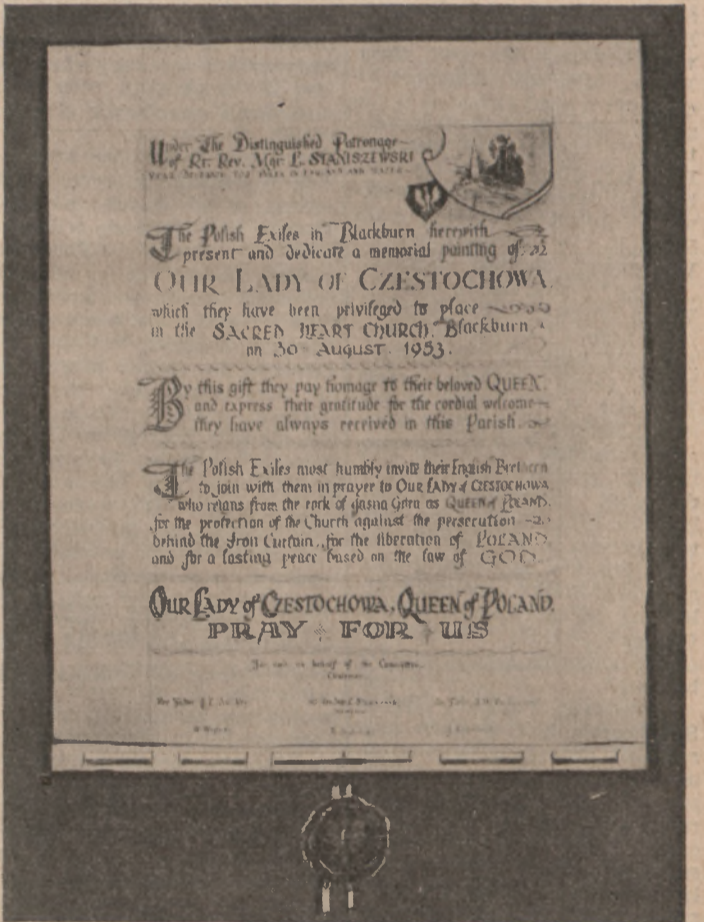 Under The Distinguished Patronage
of Rt. Rev. Mgr. L. STANISZEWSKI
The Polish Exiles in Blackburn herewith
present and dedicate a memorial painting of
OUR LADY OF CZESTOCHOWA
which they have been privileged to place
in the SACRED HEART CHURCH, Blackburn
on 30 AUGUST 1953.
By this gift they pay homage to their beloved QUEEN
and express their gratitude for the cordial welcome
they have always received in this Parish.
The Polish Exiles most humbly invite their English Brethren
to join with them in prayer to OUR LADY of CZESTOCHOWA
who reigns from the rock of Jasna Góra as QUEEN of POLAND,
for the protection of the Church against the persecution
behind the Iron Curtain, for the liberation of POLAND
and for a lasting peace based on the law of GOD.
OUR LADY of CZESTOCHOWA, QUEEN of POLAND,
PRAY FOR US
on behalf of the Committee